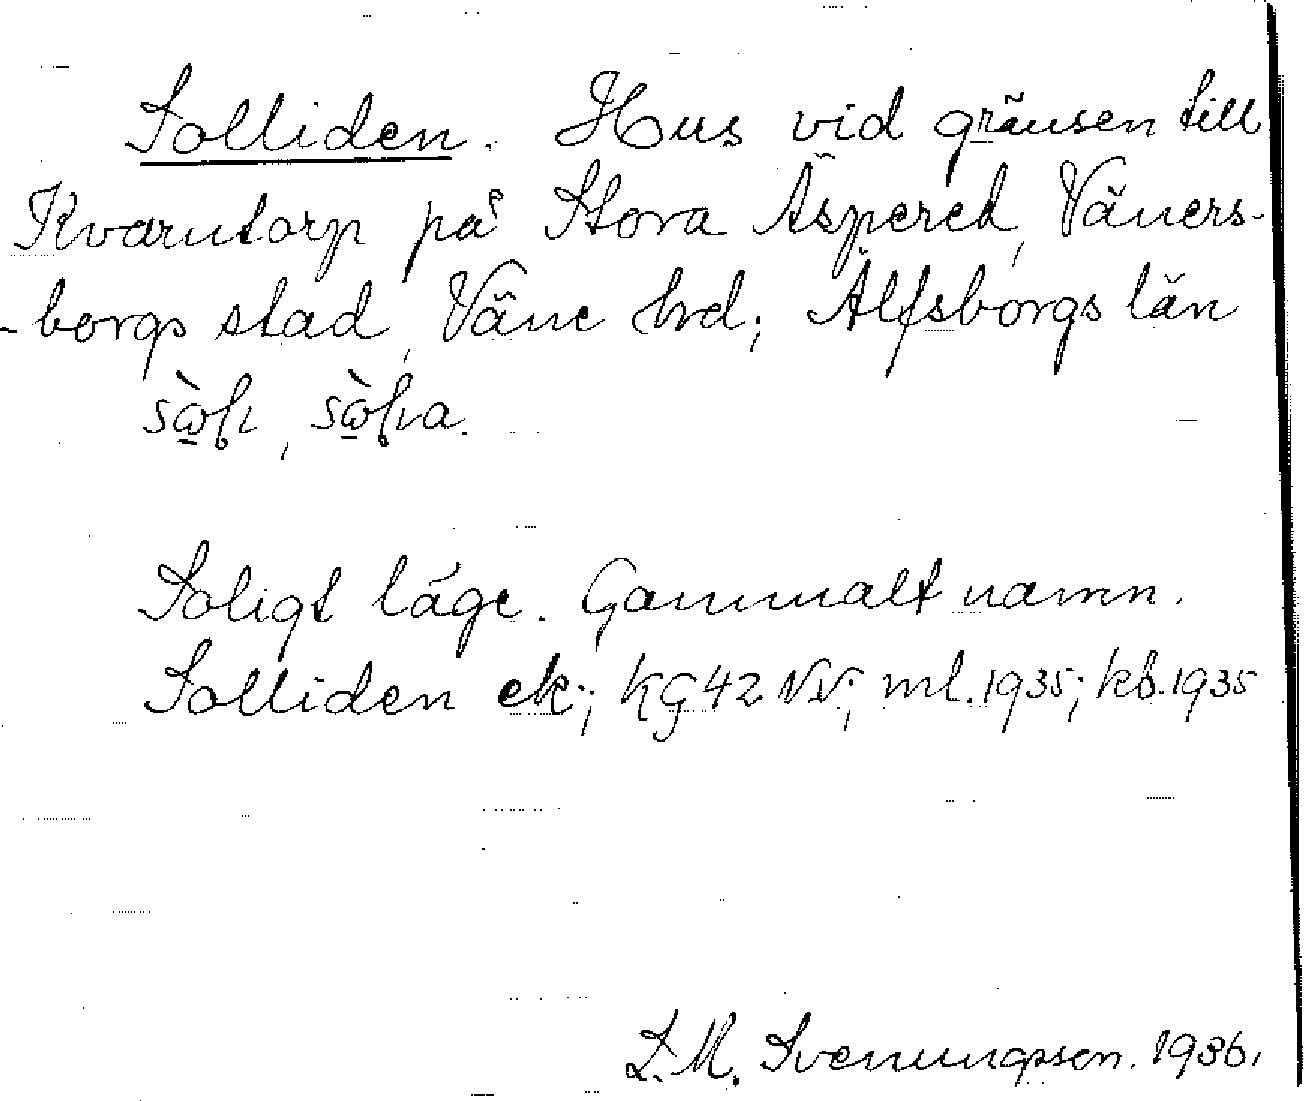 Solliden. Hus vid gränsen till
Kvarntorp på Stora Äspered, Väners-
-borgs stad, Väne hrd, Älfsborgs län
Soligt läge. Gammalt namn.
Solliden ek; KG 42 NV; ml. 1935; kb. 1935
L. M. Svenungsson. 1936.